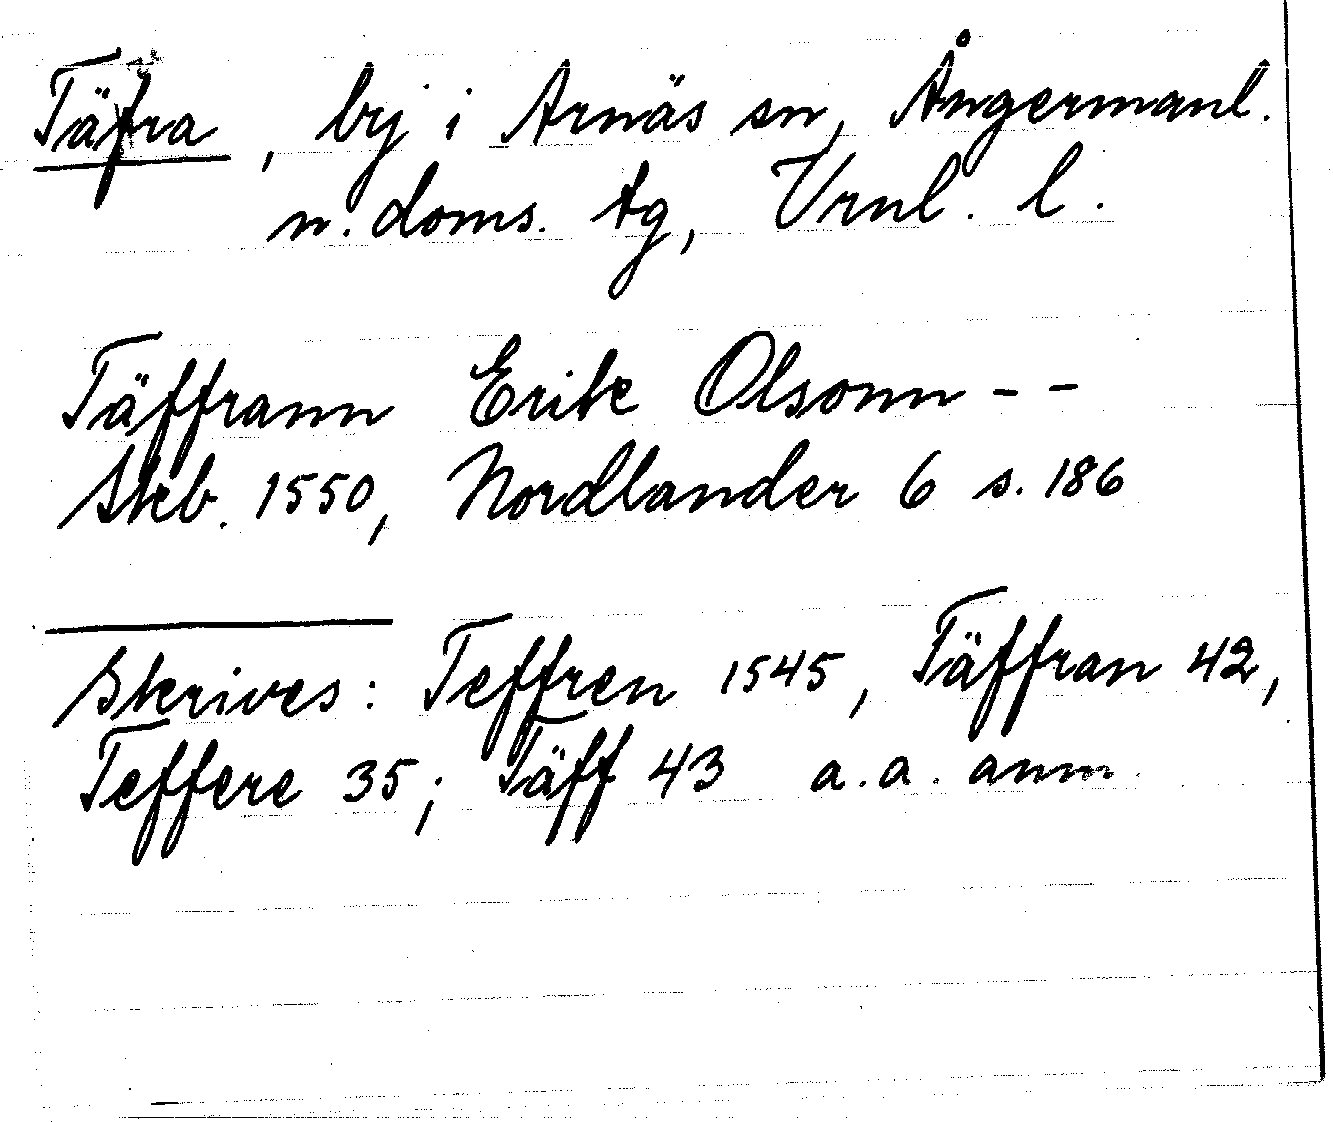 Täfra, by i Arnäs sn, Ångermanl.
n. doms. tg, Vrnl. l.
Täffrann Erik Olsonn - -
Skb. 1550, Nordlander 6 s. 186
Skrives: Teffren 1545, Täffran 42,
Teffere 35; Täff 43 a.a. anm.